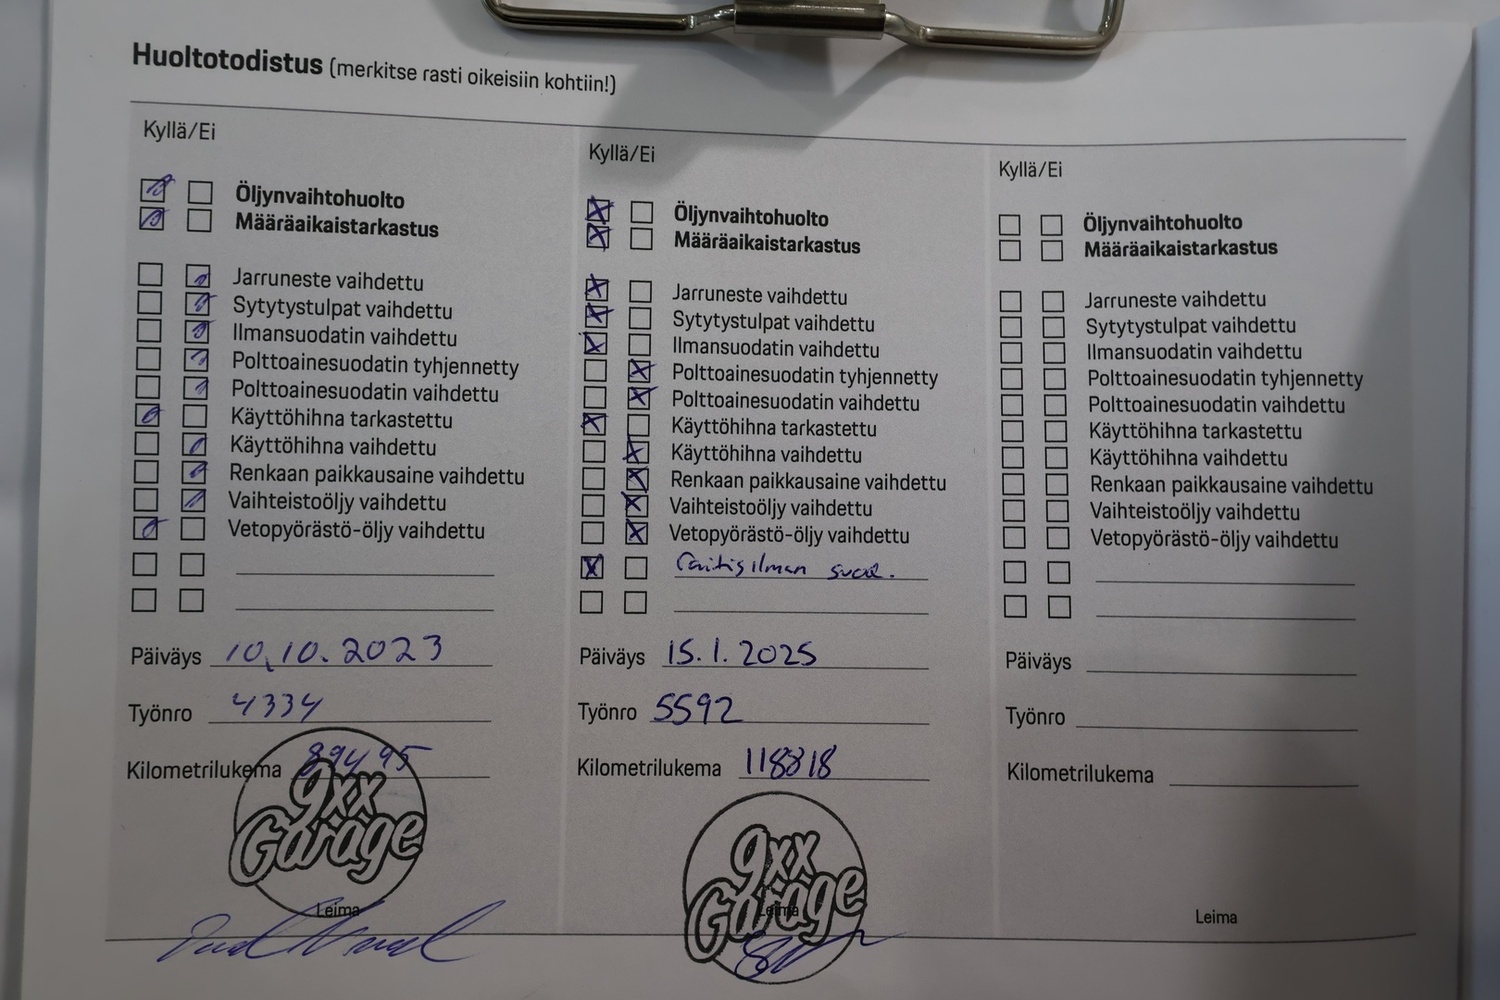 Huoltotodistus (merkitse rasti oikeisiin kohtiin!)
Kyllä/Ei
Öljynvaihtohuolto
Määräaikaistarkastus
Jarruneste vaihdettu
Sytytystulpat vaihdettu
Ilmansuodatin vaihdettu
Polttoainesuodatin tyhjennetty
Polttoainesuodatin vaihdettu
Käyttöhihna tarkastettu
Käyttöhihna vaihdettu
Renkaan paikkausaine vaihdettu
Vaihteistoöljy vaihdettu
Vetopyörästö-öljy vaihdettu
Päiväys 10.10.2023
Työnro 4334
Kilometrilukema 89495
9xx
Garage
Leima
Kyllä/Ei
Öljynvaihtohuolto
Määräaikaistarkastus
Jarruneste vaihdettu
Sytytystulpat vaihdettu
Ilmansuodatin vaihdettu
Polttoainesuodatin tyhjennetty
Polttoainesuodatin vaihdettu
Käyttöhihna tarkastettu
Käyttöhihna vaihdettu
Renkaan paikkausaine vaihdettu
Vaihteistoöljy vaihdettu
Vetopyörästö-öljy vaihdettu
Raitisilman suod.
Päiväys 15.1.2025
Työnro 5592
Kilometrilukema 118818
9xx
Garage
Leima
Kyllä/Ei
Öljynvaihtohuolto
Määräaikaistarkastus
Jarruneste vaihdettu
Sytytystulpat vaihdettu
Ilmansuodatin vaihdettu
Polttoainesuodatin tyhjennetty
Polttoainesuodatin vaihdettu
Käyttöhihna tarkastettu
Käyttöhihna vaihdettu
Renkaan paikkausaine vaihdettu
Vaihteistoöljy vaihdettu
Vetopyörästö-öljy vaihdettu
Päiväys
Työnro
Kilometrilukema
Leima